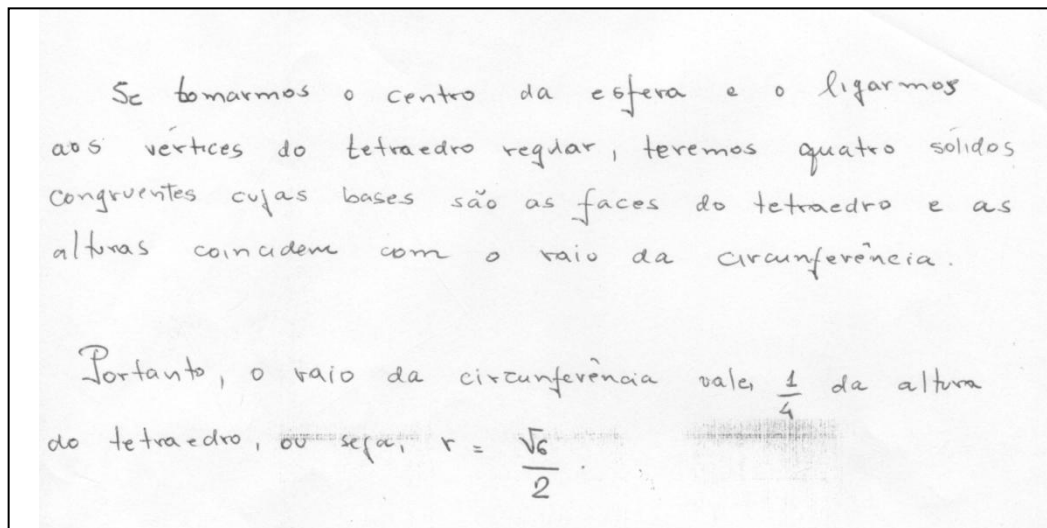 Se tomarmos o centro da esfera e o ligarmos
aos vértices do tetraedro regular, teremos quatro sólidos
congruentes cujas bases são as faces do tetraedro e as
alturas coincidem com o raio da circunferência.
Portanto, o raio da circunferência vale, 1/4 da altura
do tetraedro, ou seja, r = √6/2.